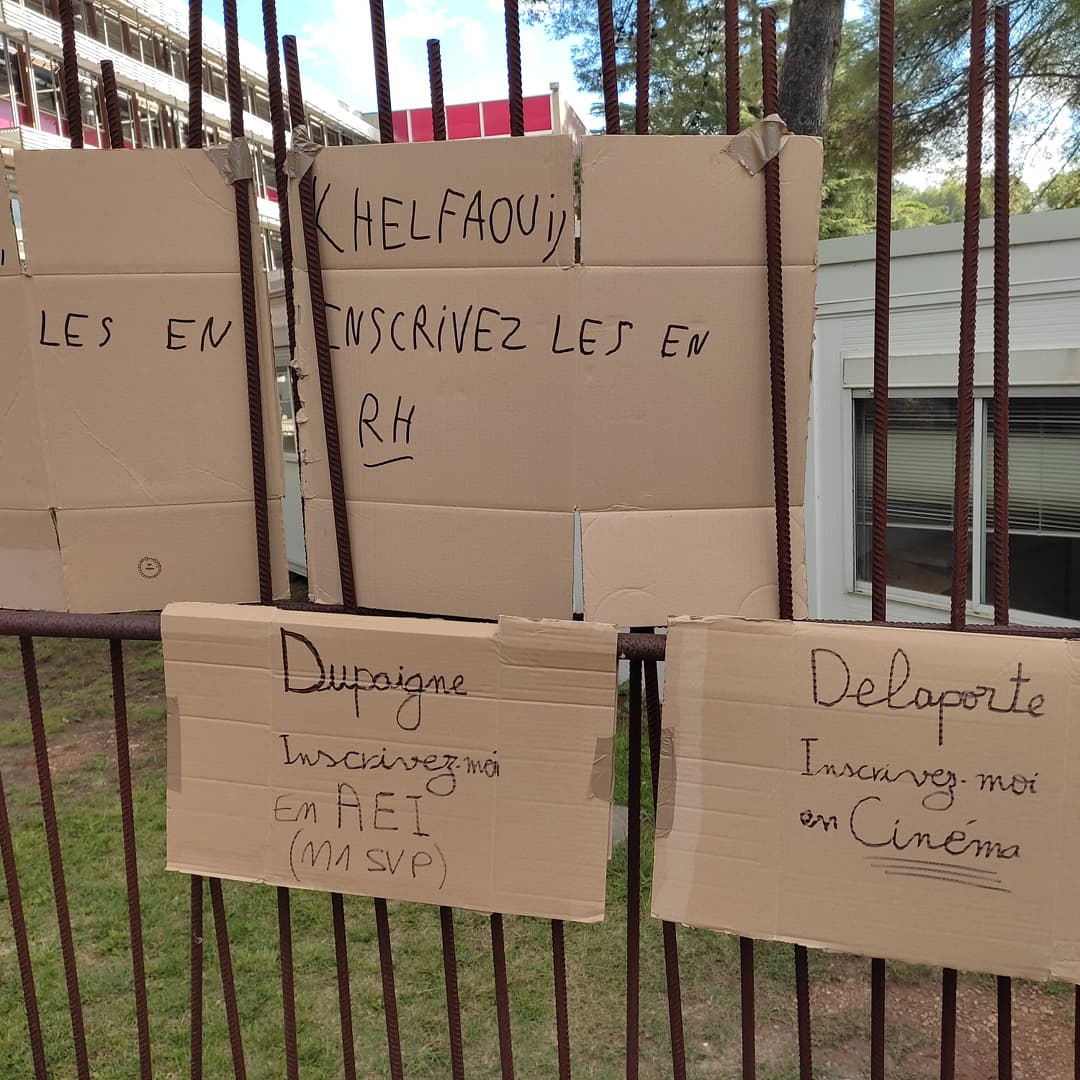 LES EN
KHELFAOUi,
INSCRiVEZ LES EN
RH
Dupaigne
Inscrivez-moi
En AEI
(M1 SVP)
Delaporte
Inscrivez-moi
en Cinéma